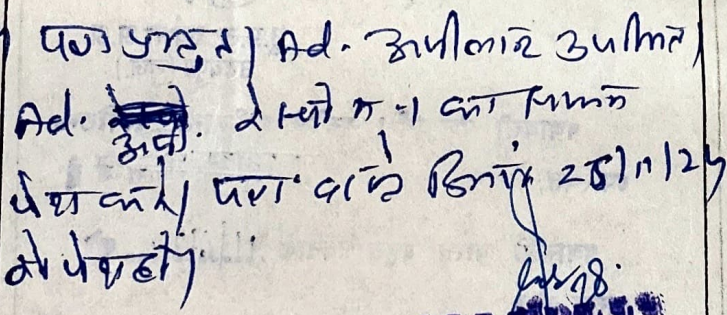 पत्रा प्रस्तुत। Ad. अपीलांट उपस्थित।
Ad. अपी. रेस्पो न. 1 का
पेश करें। पत्रा वास्ते दिनांक 25/11/24
को पेश हो।